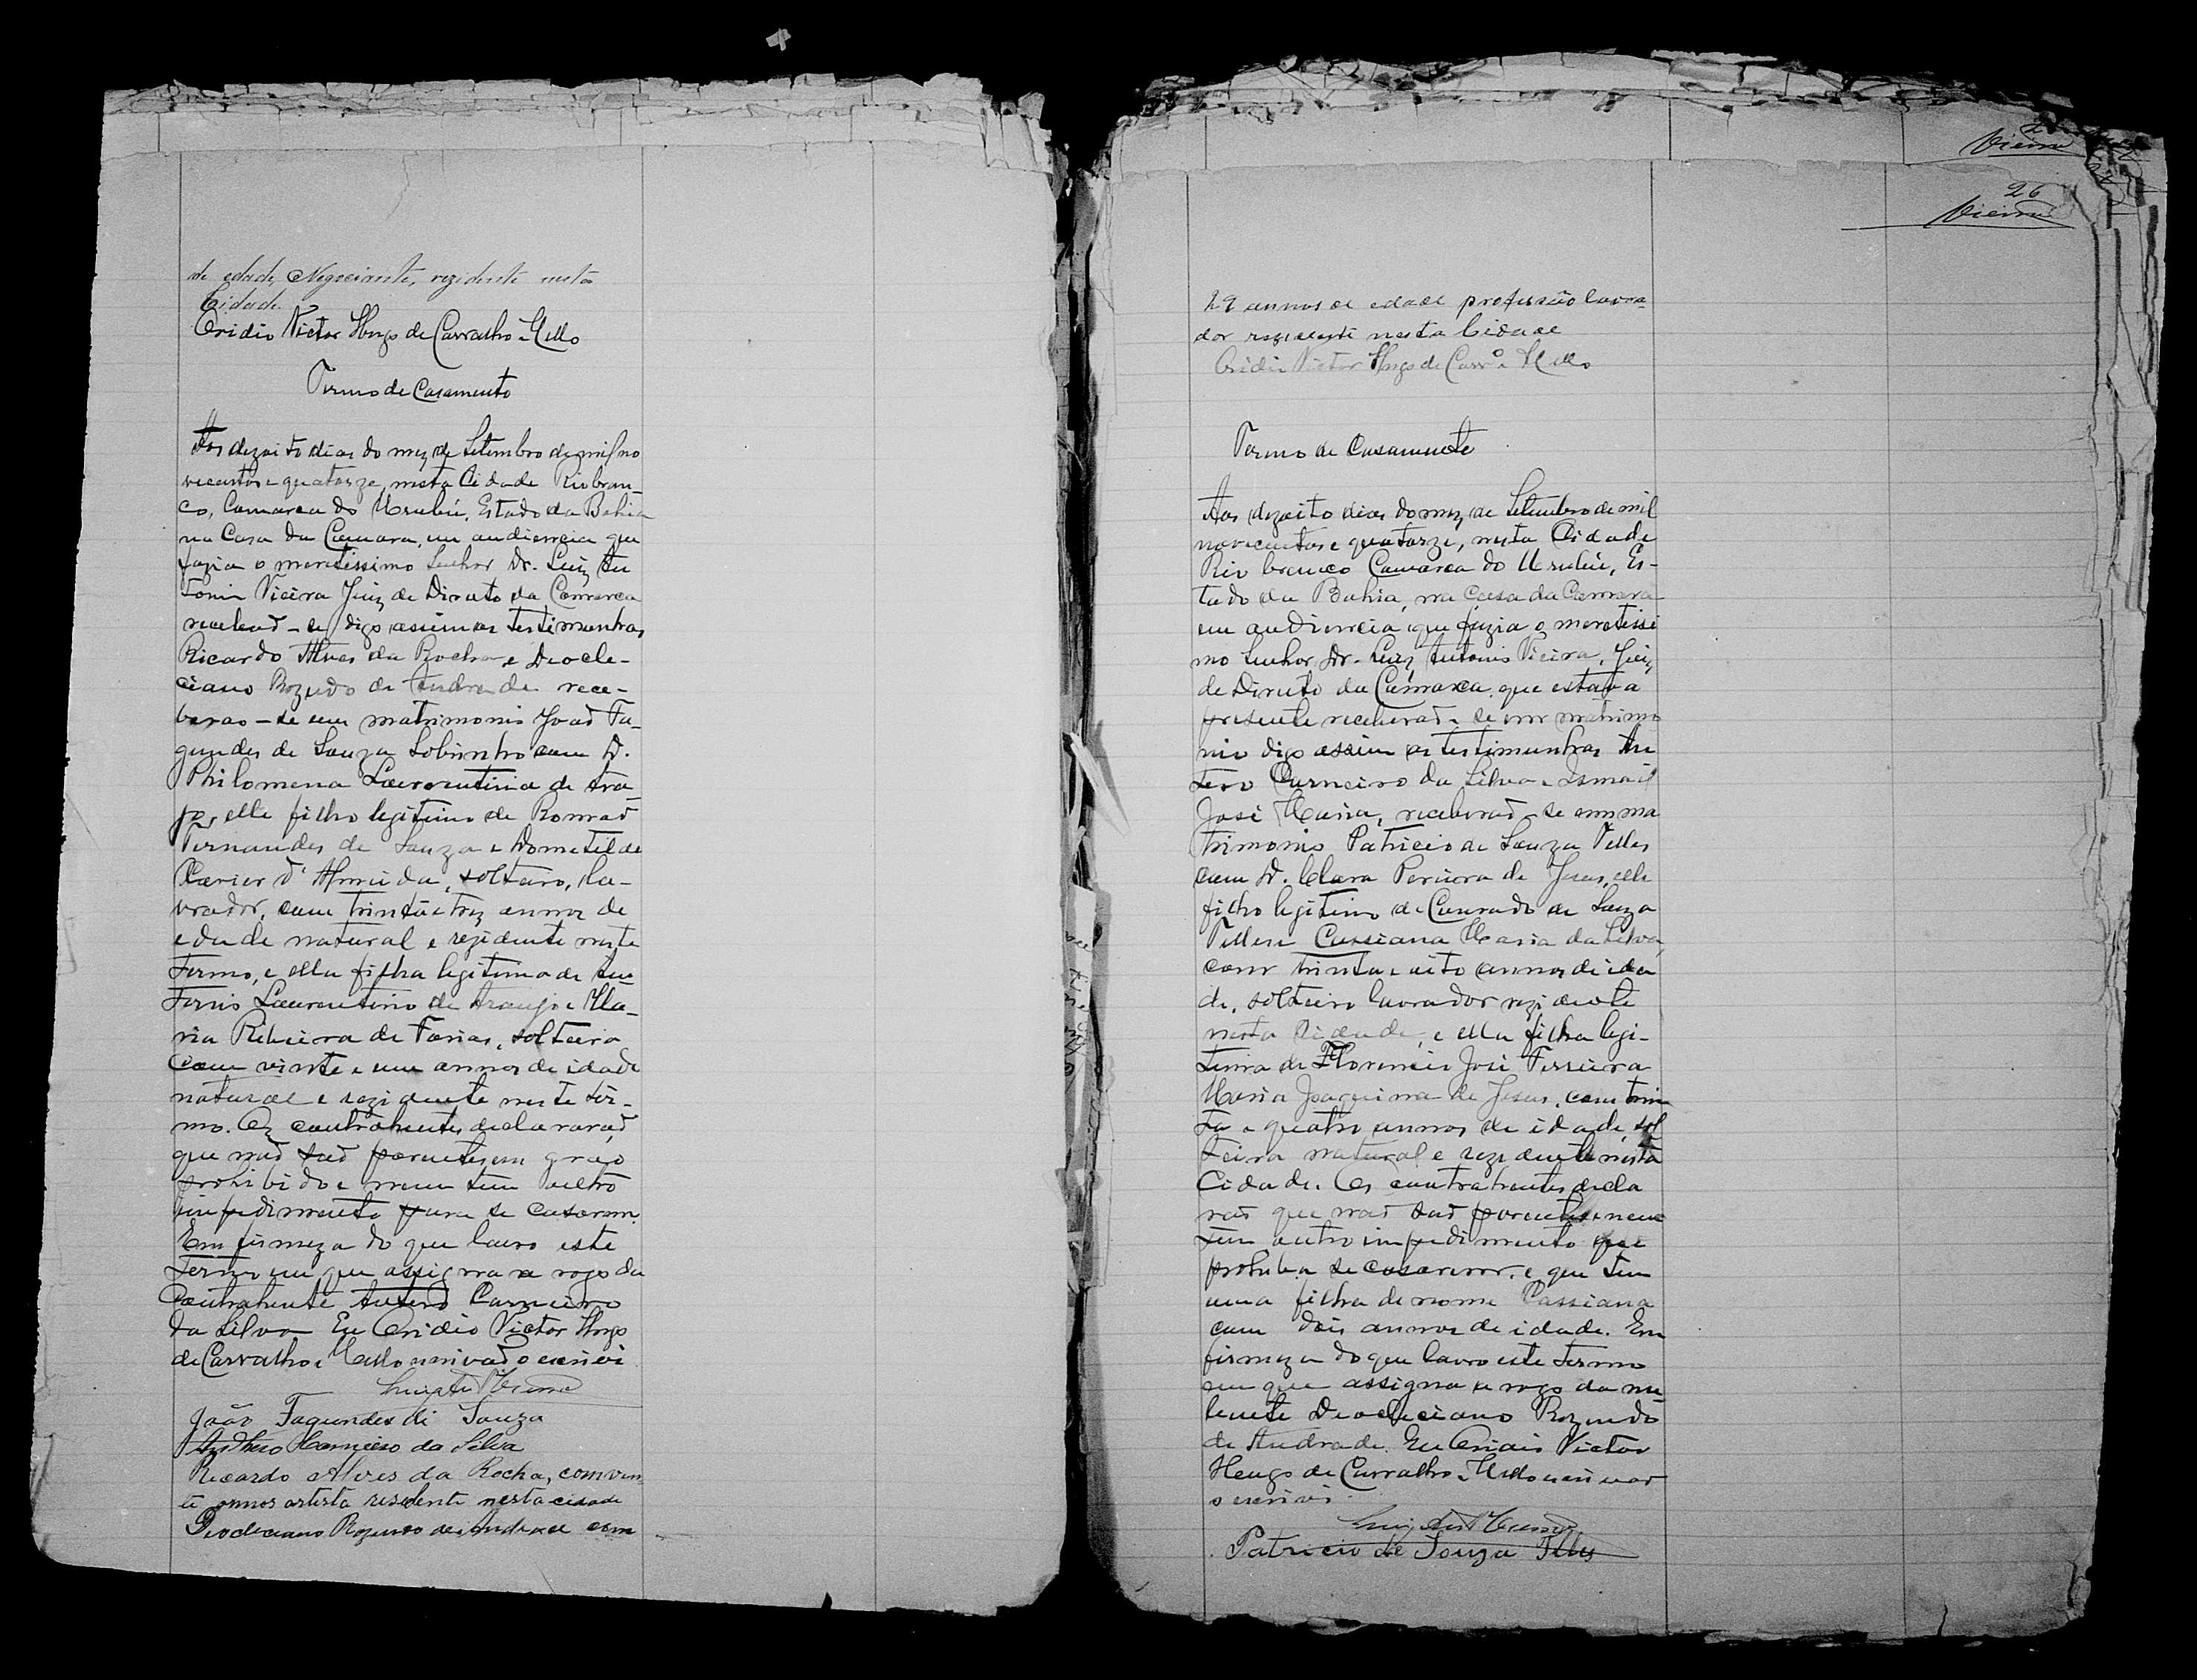 de edade, Negociante, rezidente nesta
Cidade.
Ovidio Victor Hugo de Carvalho e Mello
Termo de Casamento
Aos dezoito dias do mez de Setembro de mil no
vecentos e quatorze, nesta Cidade Rio bran-
co, Comarca do Urubú, Estado da Bahia
na Casa da Camara, em audiencia que
fazia o meretissimo Senhor Dr. Luiz An
tonio Vieira Juiz de Direito da Comarca
receberaõ-se digo assim as testimunhas
Ricardo Alves da Rocha e Deocle-
ciano Rozendo de Andrade rece-
berao-se em matrimonio Joaõ Fa-
gundes de Souza Sobrinho com D.
Philomena Laurentina de Ara-
jo, elle filho legitimo de
Fernandes de Souza e Dometilde
Xavier d'Almeida, solteiro, la-
vrador, com trinta e trez annos de
edade natural e rezidente neste
Termo, e ella filha legitima de An-
tonio Laurentino de Araujo e Ma-
ria Ribeira de Farias, solteira
com vinte e um annos de idade
natural e rezidente neste ter-
mo. Os contrahentes declararaõ,
que naõ saõ parentes em grao
prohibido e nem tem outro
impedimento para se casarem.
Em firmeza do que lavro este
termo em que assigna a rogo da
Contrahente Antero Carneiro
da Silva Eu Ovidio Victor Hugo
de Carvalho e Mello escrivaõ o escrivi
Luiz An Vieira
João Fagundes di Souza
Anthero Carneiro da Silva
Ricardo Alves da Rocha, com vin
te annos artista residente nesta cidade
Deocleciano Rozendo de Andrade com
2
Vieira
26
Vieira
29 annos de edade profissão lavra-
dor rezidente nesta Cidade
Ovidio Victor Hugo de Carvº e Mello
Termo de Casamento
Aos dezoito dias do mez de Setembro de mil
novecentos e quatorze, nesta Cidade
Rio branco Comarca do Urubú, Es-
tado da Bahia, na Casa da Camara
em audiencia que fazia o meretissi
mo Senhor Dr. Luiz Antonio Vieira, Juiz
de Direito da Comarca que estava
presente receberaõ-se em matrimo
nio digo assim as testimunhas An
tero Carneiro da Silva e Ismael
José Maria, receberaõ-se em ma
trimonio Patricio de Souza Telles
com D. Clara Pereira de Jesus, elle
filho legitimo de Conrado de Souza
Telles e Cassiana Maria da Silva,
com trinta e oito annos de ida
de, solteiro lavrador rezidente
nesta Cidade, e ella filha legi-
tima de Florencio José Ferreira
Maria Joaquina de Jesus, com trin
ta e quatro annos de idade, sol
teira natural e rezidente nesta
Cidade. Os contrahentes decla
raõ que naõ saõ parentes e nem
tem outro impedimento que
prohiba se casarem, e que tem
uma filha de nome Cassiana
com dois annos de idade. Em
firmeza do que lavro este termo
em que assigna a rogo da nu
bente Deocleciano Rozendo
de Andrade. Eu Ovidio Victor
Hugo de Carvalho e Mello escrivaõ
o escrivi.
Luiz An Vieira
Patricio de Souza Telles